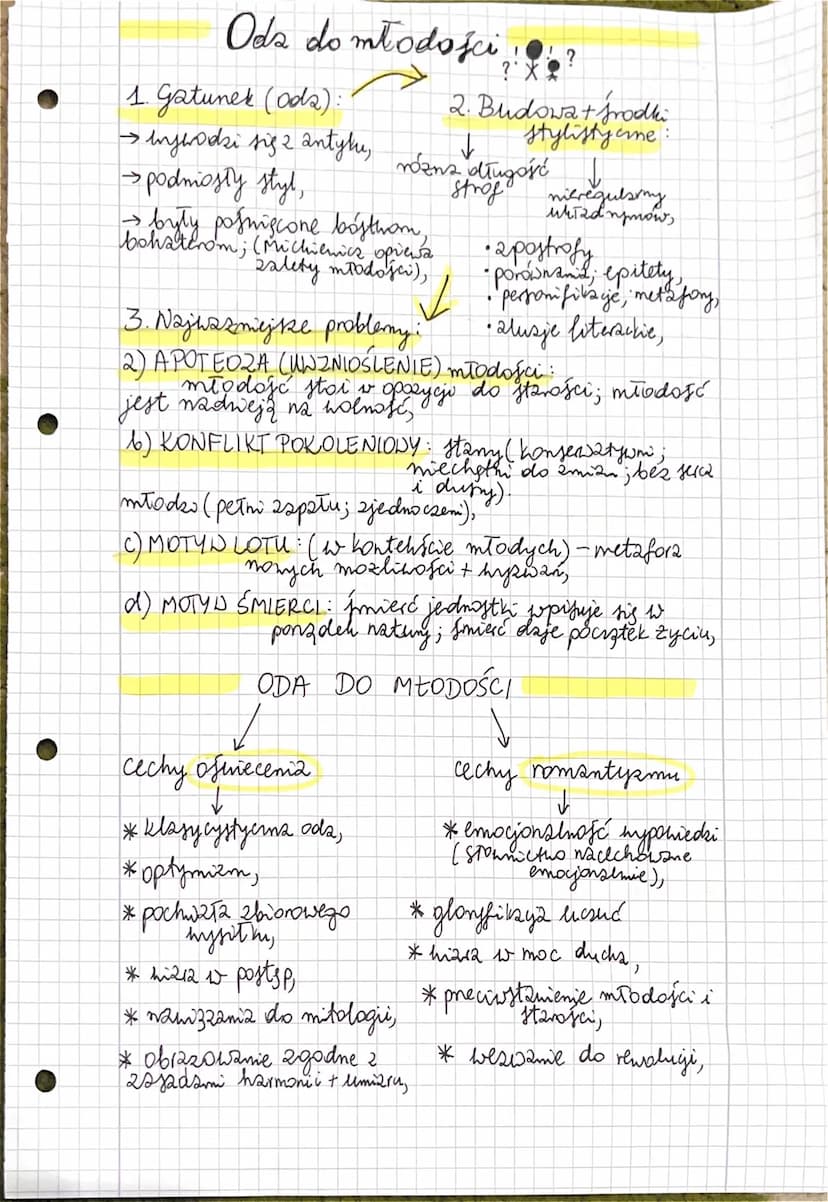 Oda do młodości !!?
1. Gatunek (oda):
→ wywodzi się z antyku,
→ podniosły styl,
→ były poświęcone bóstwom,
bohaterom; (Mickiewicz opiewa
zalety młodości),
2. Budowa + środki
stylistyczne:
różna długość
strof
nieregularny
układ rymów,
• apostrofy
• porównania; epitety,
• personifikacje; metafory,
• aluzje literackie,
3. Najważniejsze problemy:
a) APOTEOZA (UWZNIOŚLENIE) młodości:
młodość stoi w opozycji do starości; młodość
jest nadzieją na wolność,
b) KONFLIKT POKOLENIOWY: starzy (konserwatywni;
niechętni do zmian; bez serca
i duszy).
młodzi (pełni zapału; zjednoczeni),
c) MOTYW LOTU: (w kontekście młodych) – metafora
nowych możliwości + wyzwań,
d) MOTYW ŚMIERCI: śmierć jednostki wpisuje się w
porządek natury; śmierć daje początek życiu,
ODA DO MŁODOŚCI
cechy oświecenia
* klasycystyczna oda,
* optymizm,
* pochwała zbiorowego
wysiłku,
* wiara w postęp,
* nawiązania do mitologii,
* obrazowanie zgodne z
zasadami harmonii + umiaru,
cechy romantyzmu
* emocjonalność wypowiedzi
(słownictwo nacechowane
emocjonalnie),
* gloryfikacja uczuć
* wiara w moc ducha,
* przeciwstawienie młodości i
starości,
* wezwanie do rewolucji,